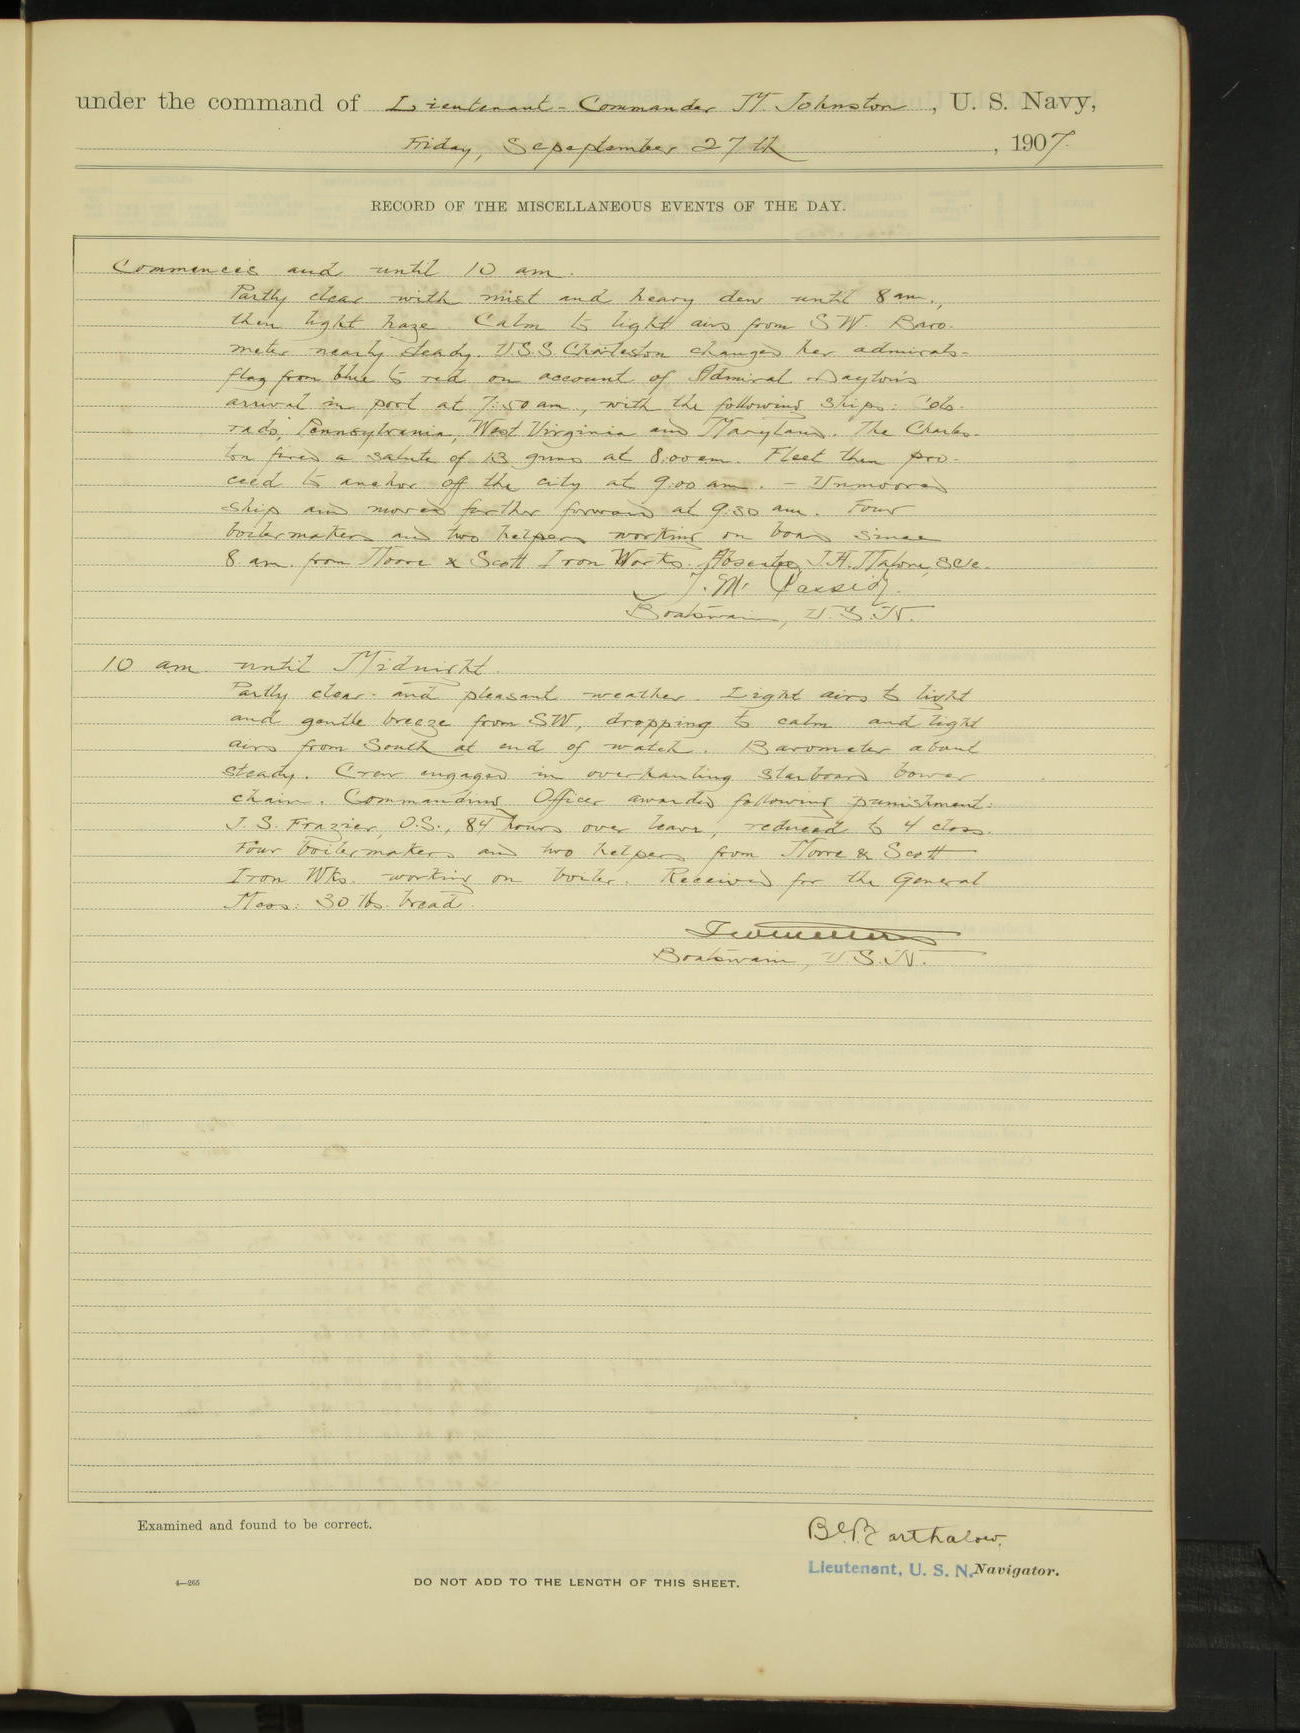 under the command of Lieutenant-Commander M. Johnston, U. S. Navy,
Friday, Sepeptember 27th, 1907.
RECORD OF THE MISCELLANEOUS EVENTS OF THE DAY.
Commences and until 10 am.
Partly clear with mist and heavy dew until 8 am.,
then light haze. Calm to light airs from SW. Baro-
meter nearly steady. U.S.S. Charleston changed her admirals-
flag from blue to red on account of Admiral Dayton's
arrival in port at 7:50 am., with the following ships: Colo-
rado, Pennsylvania, West Virginia and Maryland. The Charles-
ton fired a salute of 13 guns at 8:00 am. Fleet then pro-
ceed to anchor off the city at 9:00 am. - Unmoored
ship and moved farther forward at 9:30 am. Four
boilermakers and two helpers working on board since
8 am. from Moore & Scott Iron Works. Absentee J.H. Malone,
J. M. Cassidy.
Boatswain, U.S.N.
10 am. until Midnight.
Partly clear and pleasant weather. Light airs to light
and gentle breeze from SW, dropping to calm and light
airs from South at end of watch. Barometer about
steady. Crew engaged in overhauling starboard bower
chain. Commanding Officer awarded following punishment:
J. S. Frazier, O.S., 84 hours over leave, reduced to 4 class.
Four boilermakers and two helpers from Moore & Scott
Iron Wks. working on boiler. Received for the General
Mess: 30 lbs. bread.
Boatswain, U.S.N.
Examined and found to be correct.
Barthalow.
Lieutenant, U. S. N. Navigator.
4—265
DO NOT ADD TO THE LENGTH OF THIS SHEET.